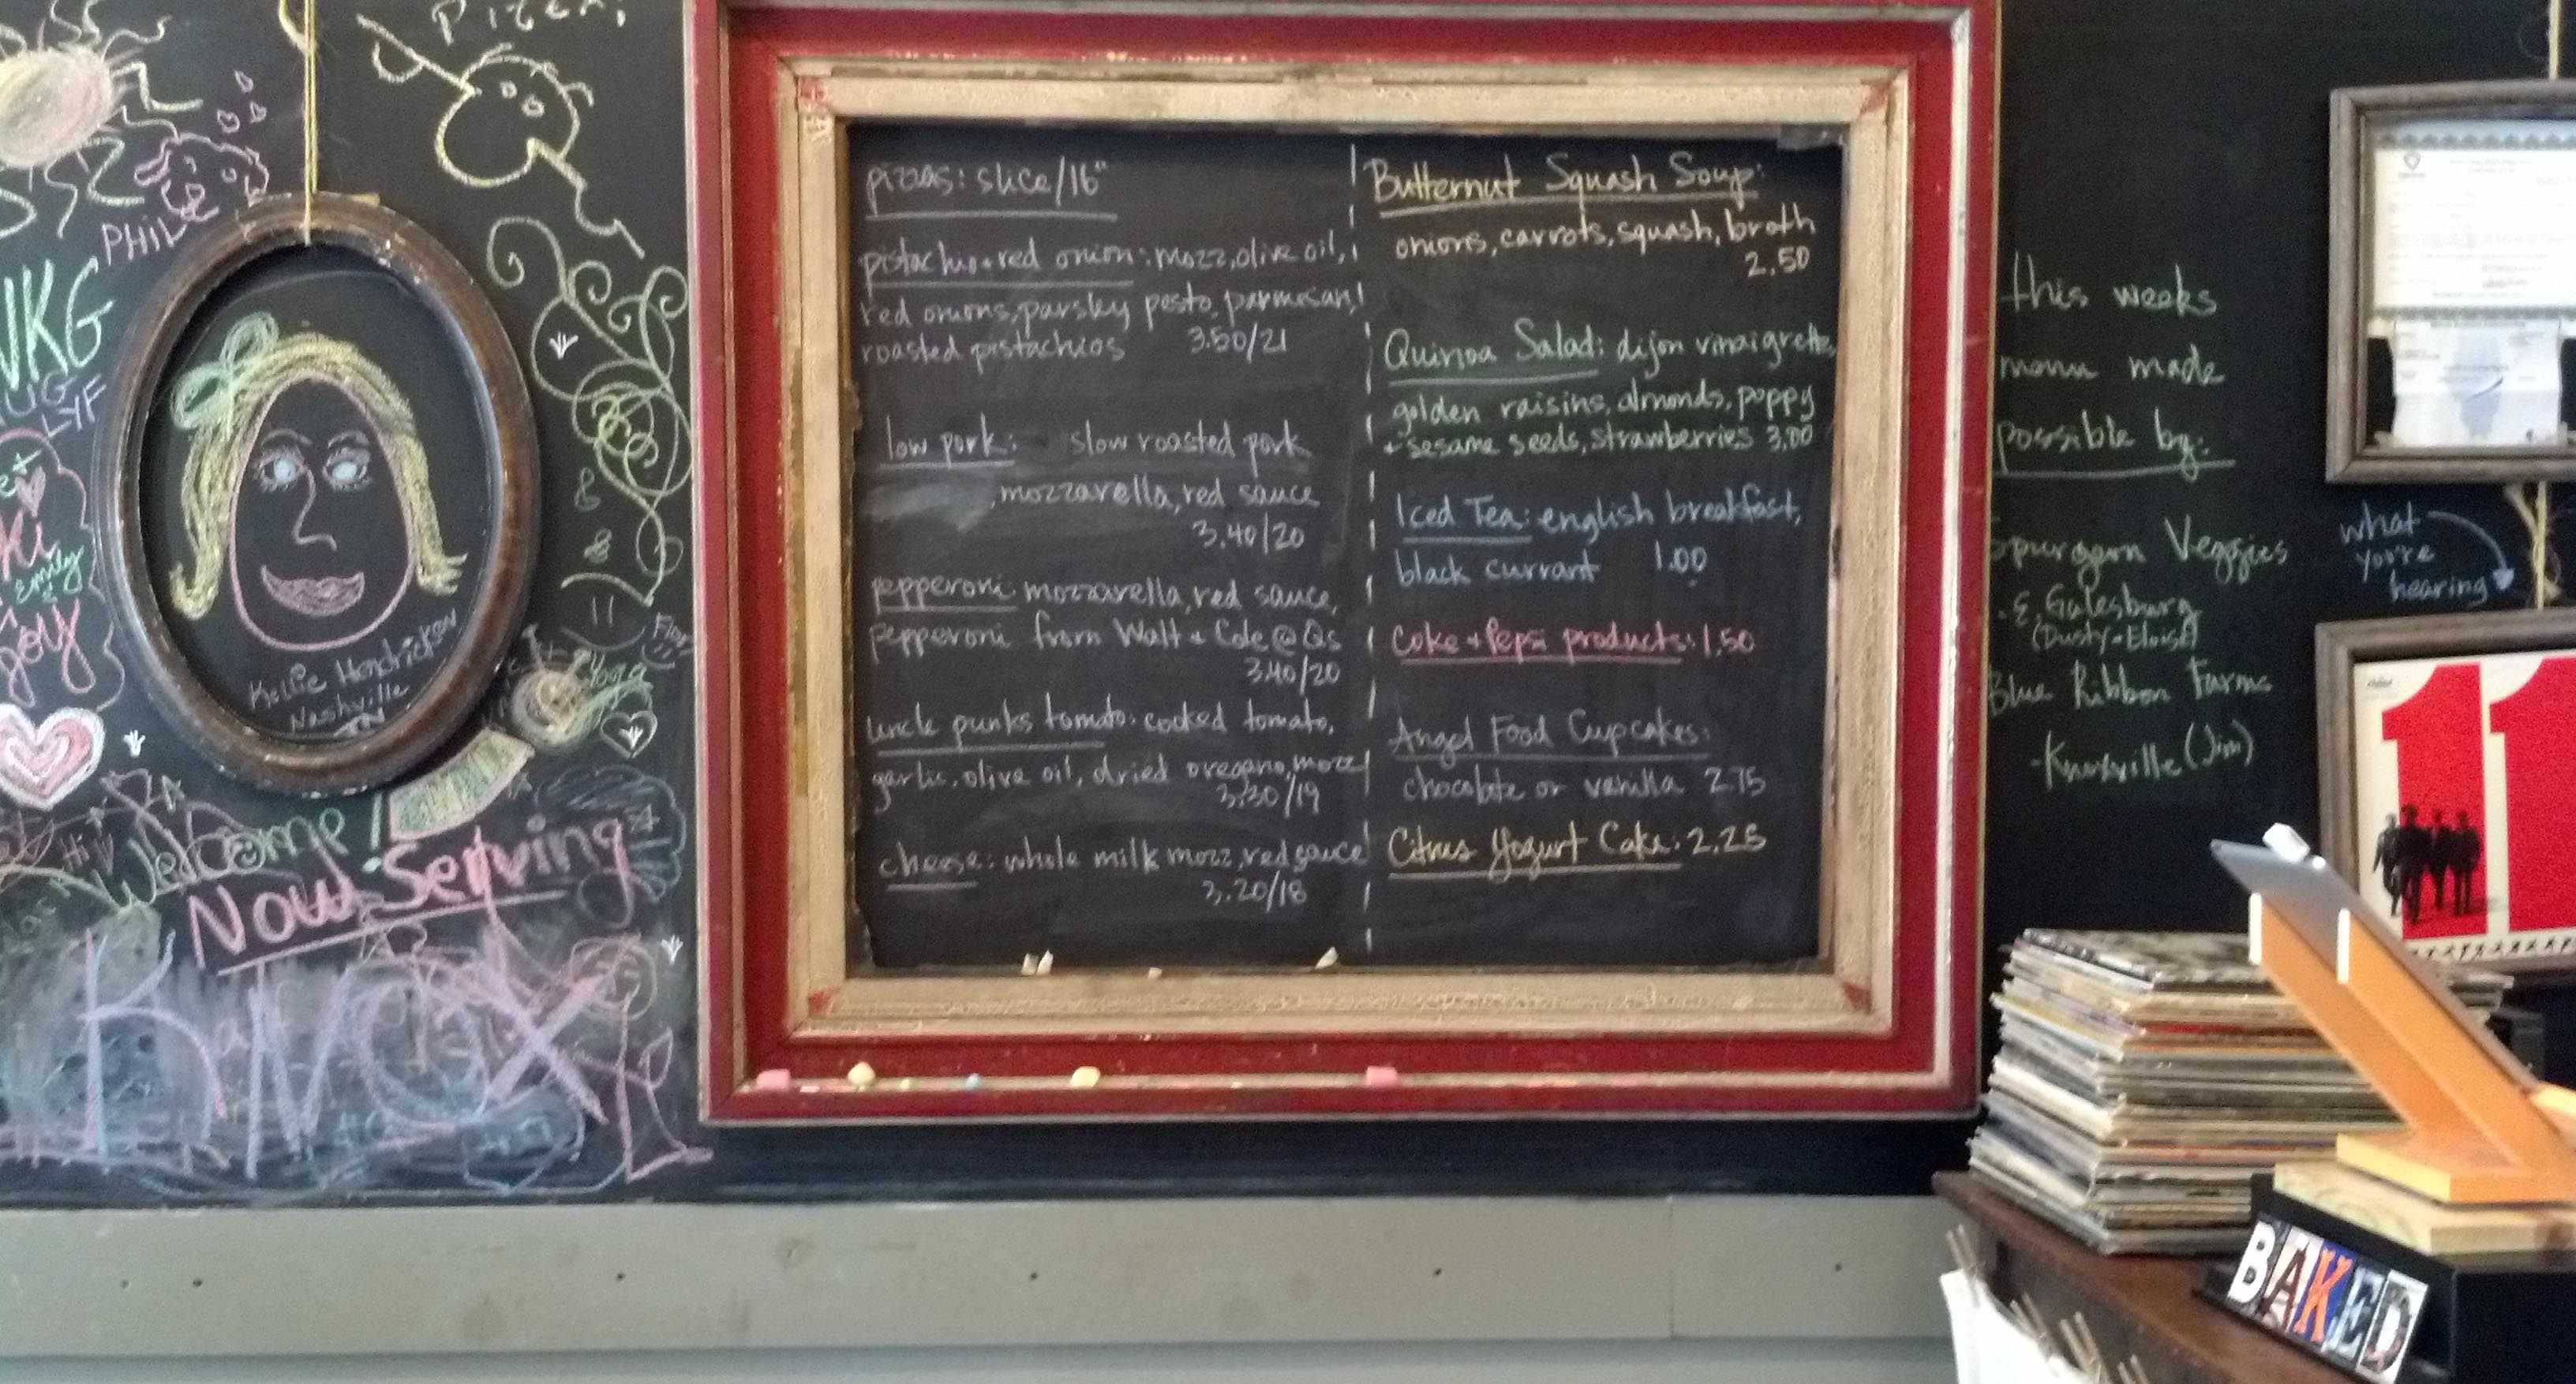 PHILO
NKG
LYF
Emily
Joy
Hi
Kellie Hendrickson
Nashville
TN
Welcome!
Now Serving
KNOX
Yoga
pizzas: slice/16"
pistachio + red onion: mozz, olive oil,
red onions, parsley pesto, parmesan,
roasted pistachios 3.50/21
low pork: slow roasted pork
, mozzarella, red sauce
3.40/20
pepperoni: mozzarella, red sauce,
pepperoni from Walt + Cole @ Qs
3.40/20
uncle punks tomato: cooked tomato,
garlic, olive oil, dried oregano, mozz
3.30/19
cheese: whole milk mozz, red sauce
3.20/18
Butternut Squash Soup:
onions, carrots, squash, broth
2.50
Quinoa Salad: dijon vinaigrette,
golden raisins, almonds, poppy
+ sesame seeds, strawberries 3.00
Iced Tea: english breakfast,
black currant 1.00
Coke + Pepsi products: 1.50
Angel Food Cupcakes:
chocolate or vanilla 2.75
Citrus Yogurt Cake: 2.25
this weeks
menu made
possible by:
Spurgeon Veggies
- E. Galesburg
(Dusty + Eloise)
Blue Ribbon Farms
- Knoxville (Jim)
what
you're
hearing
11
BAKED